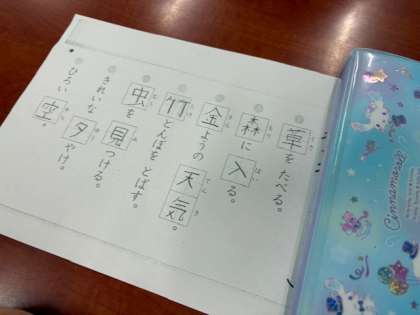 草をたべる。
森に入る。
金ようの天気。
竹とんぼをとばす。
虫を見つける。
きれいな夕やけ。
ひろい空。
Cinnamoroll